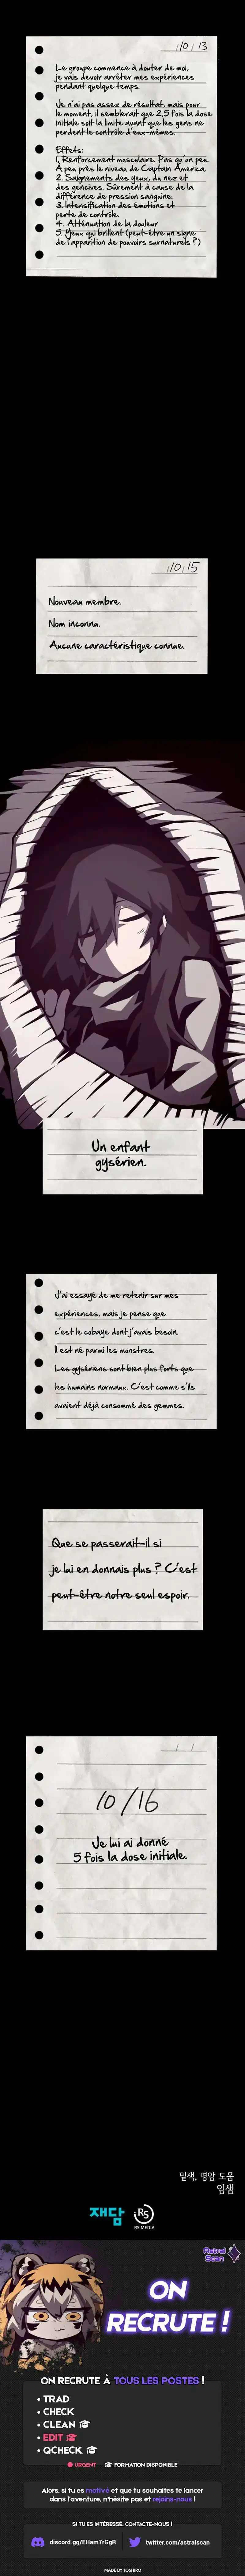 10 / 13
Le groupe commence à douter de moi,
je vais devoir arrêter mes expériences
pendant quelque temps.
Je n'ai pas assez de résultat, mais pour
le moment, il semblerait que 2,5 fois la dose
initiale soit la limite avant que les gens ne
perdent le contrôle d'eux-mêmes.
Effets:
1. Renforcement musculaire. Pas qu'un peu.
À peu près le niveau de Captain America.
2. Saignements des yeux, du nez et
des gencives. Sûrement à cause de la
différence de pression sanguine.
3. Intensification des émotions et
perte de contrôle.
4. Atténuation de la douleur
5. Yeux qui brillent (peut-être un signe
de l'apparition de pouvoirs surnaturels ?)
10 15
Nouveau membre.
Nom inconnu.
Aucune caractéristique connue.
Un enfant
gysérien.
J'ai essayé de me retenir sur mes
expériences, mais je pense que
c'est le cobaye dont j'avais besoin.
Il est né parmi les monstres.
Les gysériens sont bien plus forts que
les humains normaux. C'est comme s'ils
avaient déjà consommé des gemmes.
Que se passerait-il si
je lui en donnais plus ? C'est
peut-être notre seul espoir.
10/16
Je lui ai donné
5 fois la dose initiale.
밑색, 명암 도움
임샘
재담
RS
RS MEDIA
Astral
Scan
ON
RECRUTE !
ON RECRUTE À TOUS LES POSTES !
• TRAD
• CHECK
• CLEAN
• EDIT
• QCHECK
URGENT FORMATION DISPONIBLE
Alors, si tu es motivé et que tu souhaites te lancer
dans l'aventure, n'hésite pas et rejoins-nous !
SI TU ES INTÉRESSÉ, CONTACTE-NOUS !
discord.gg/EHam7rGgR twitter.com/astralscan
MADE BY TOSHIRO